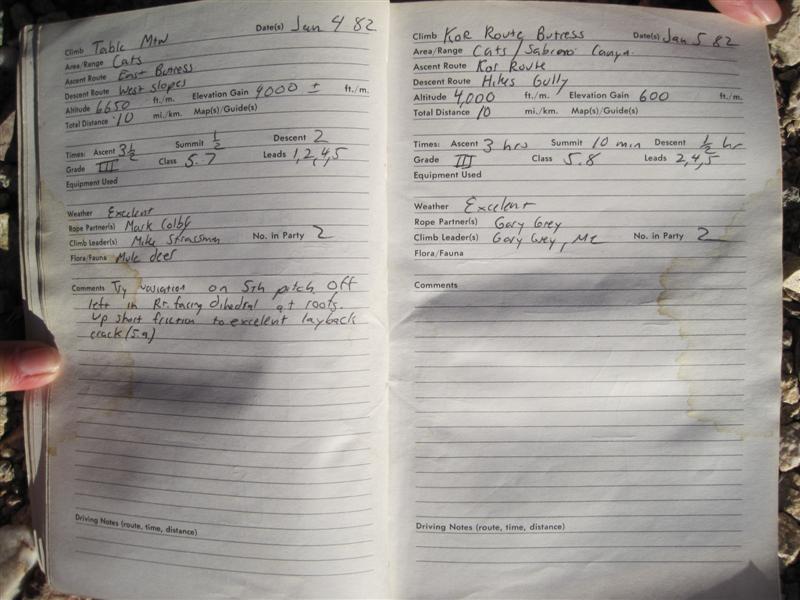 Climb Table Mtn Date(s) Jan 4 82
Area/Range Cats
Ascent Route East Butress
Descent Route West slopes
Altitude 6650 ft./m. Elevation Gain 4000 ± ft./m.
Total Distance 10 mi./km. Map(s)/Guide(s)
Times: Ascent 3½ Summit ½ Descent 2
Grade III Class 5.7 Leads 1,2,4,5
Equipment Used
Weather Excelent
Rope Partner(s) Mark Colby
Climb Leader(s) Mike Strassman No. in Party 2
Flora/Fauna Mule deer
Comments Try variation on 5th pitch off
left in Rt. facing dihedral at roofs.
up short friction to excelent layback
crack (5.9)
Driving Notes (route, time, distance)
Climb Kor Route Butress Date(s) Jan 5 82
Area/Range Cats / Sabino Canyn
Ascent Route Kor Route
Descent Route Hikes Gully
Altitude 4,000 ft./m. Elevation Gain 600 ft./m.
Total Distance 10 mi./km. Map(s)/Guide(s)
Times: Ascent 3 hrs Summit 10 min Descent ½ hr
Grade III Class 5.8 Leads 2,4,5
Equipment Used
Weather Excelent
Rope Partner(s) Gary Grey
Climb Leader(s) Gary Grey, Me No. in Party 2
Flora/Fauna
Comments
Driving Notes (route, time, distance)